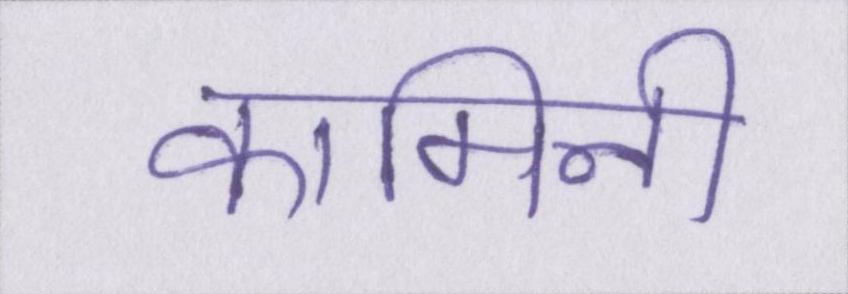 कामिनी